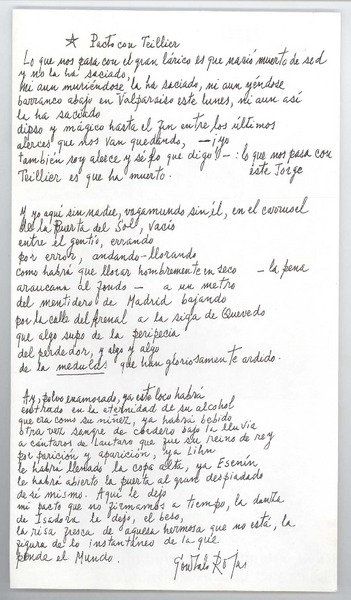 ★ Pacto con Teillier
Lo que nos pasa con el gran lárico es que nació muerto de sed
y no la ha saciado,
ni aun muriéndose la ha saciado, ni aun yéndose
barranco abajo en Valparaíso este lunes, ni aun así
la ha saciado
dipso y mágico hasta el fin entre los últimos
alerces que nos van quedando, — ¡yo
también soy alerce y sé lo que digo! — : lo que nos pasa con
este Jorge
Teillier es que ha muerto.
Y yo aquí sin nadie, vagamundo sin él, en el carrusel
de la Puerta del Sol, vacío
entre el gentío, errando
por error, andando-llorando
como habrá que llorar hombremente en seco — la pena
araucana al fondo — a un metro
del mentidero de Madrid bajando
por la calle del Arenal a la siga de Quevedo
que algo supo de la peripecia
del perdedor, y algo y algo
de la medulas que han gloriosamente ardido.
Ay, polvo enamorado, ya este loco habrá
entrado en la eternidad de su alcohol
que era como su niñez, ya habrá bebido
otra vez sangre de cordero bajo la lluvia
a cántaros de Lautaro que fue su reino de rey
por parición y aparición, ya Lihn
le habrá llenado la copa alta, ya Esenín
le habrá abierto la puerta al gran despiadado
de sí mismo. Aquí le dejo
mi pacto que no firmamos a tiempo, la danza
de Isadora le dejo, el beso,
la risa fresca de aquesa hermosa que no está, la
figura de lo instantáneo de la que
pende el Mundo.
Gonzalo Rojas